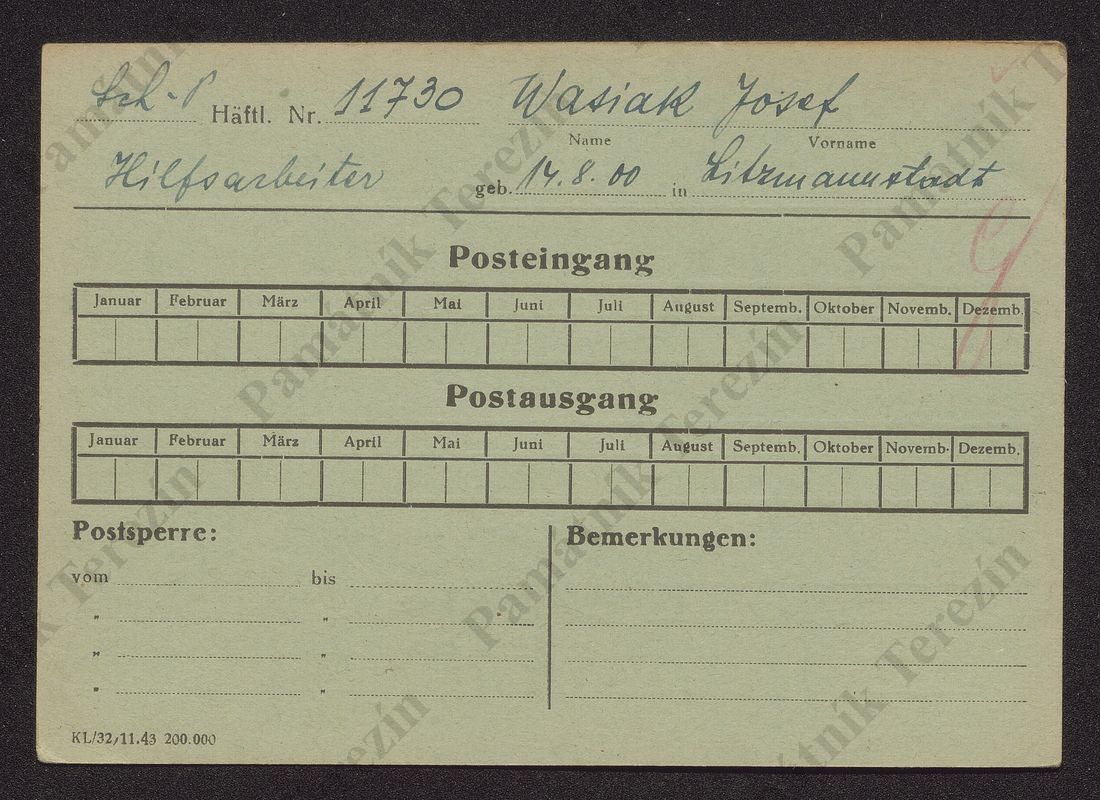 Sch-P Häftl. Nr. 11730 Wasiak Josef
Name Vorname
Hilfsarbeiter geb. 14.8.00 in Litzmannstadt
Posteingang
Januar Februar März April Mai Juni Juli August Septemb. Oktober Novemb. Dezemb.
Postausgang
Januar Februar März April Mai Juni Juli August Septemb. Oktober Novemb. Dezemb.
Postsperre: Bemerkungen:
vom bis
" "
" "
" "
KL/32/11.43 200.000
Památník Terezín
Památník Terezín
Památník Terezín
Památník Terezín
Památník Terezín